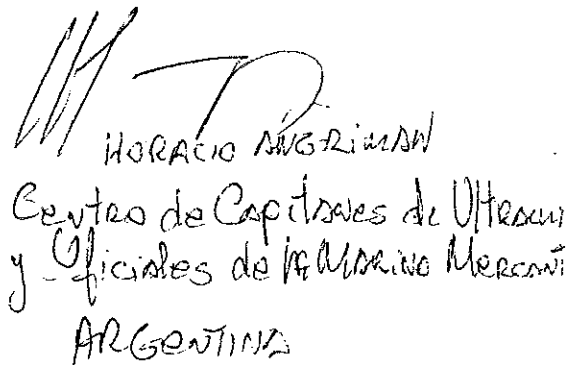 HORACIO ANGRIMAN
Centro de Capitanes de Ultram
y Oficiales de la Marina Mercant
ARGENTINA